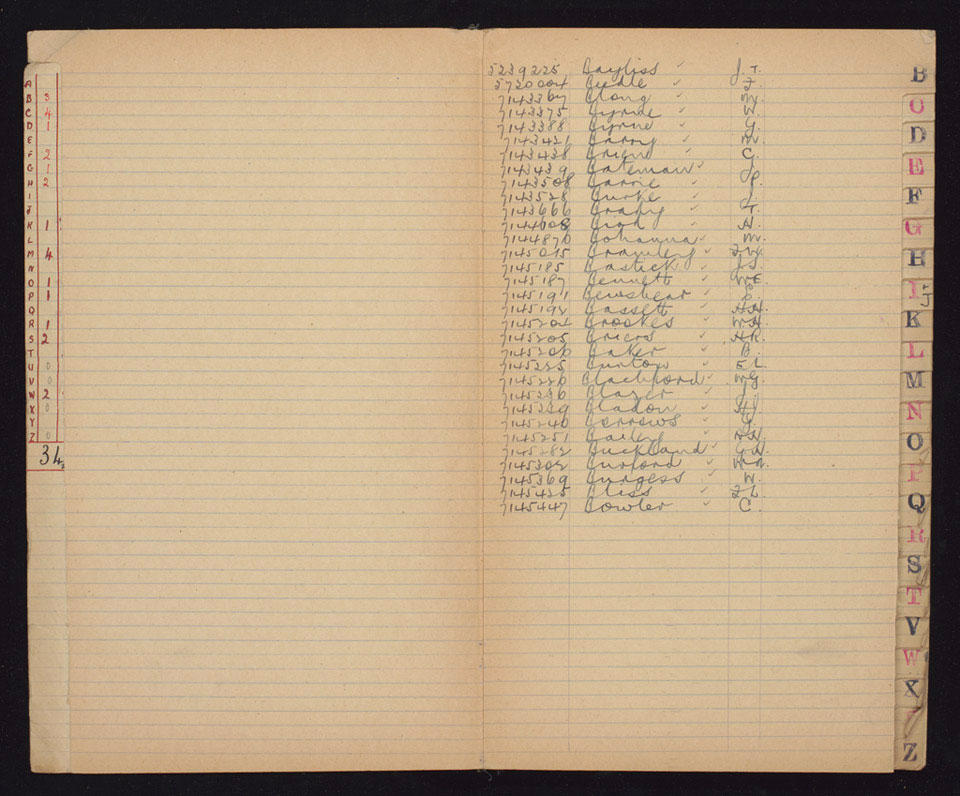 A
B 3
C 4
D 1
E
F 2
G 1
H 2
I
J
K 1
L
M 4
N
O 1
P 1
Q
R 1
S 2
T
U 0
V 0
W 2
X 0
Y
Z 0
34
5239225 Bayliss J. T.
5720004 Beale F.
7143367 Blong M.
7143375 Byrne W.
7143388 Byrne G.
7143421 Barry M.
7143438 Brien C.
7143439 Bateman J.
7143508 Barrie P.
7143528 Burke J.
7143666 Brady T.
7144008 H.
7144870 Bohanna M.
7145015 Brawley F. W.
7145185 Bastick J. S.
7145187 Bennett W. E.
7145191 Bewshear S.
7145192 Bassett A. H.
7145204 Brookes W. H.
7145205 Briers H. R.
7145206 Baker B.
7145225 Burton E. L.
7145226 Blackford W. G.
7145236 Blazer J.
7145239 Bladon H. J.
7145240 Berrows G.
7145251 Bailey
7145282 Buckland G. H.
7145302 Burford
7145369 Burgess W.
7145425 Bliss F. L.
7145447 Bowler C.
B
C
D
E
F
G
H
I - J
K
L
M
N
O
P
Q
R
S
T
V
W
X
Z